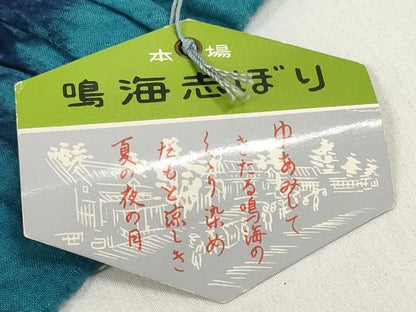 本場
鳴海志ぼり
ゆあみして
きたる鳴海の
くゝり染め
たもと涼しき
夏の夜の月